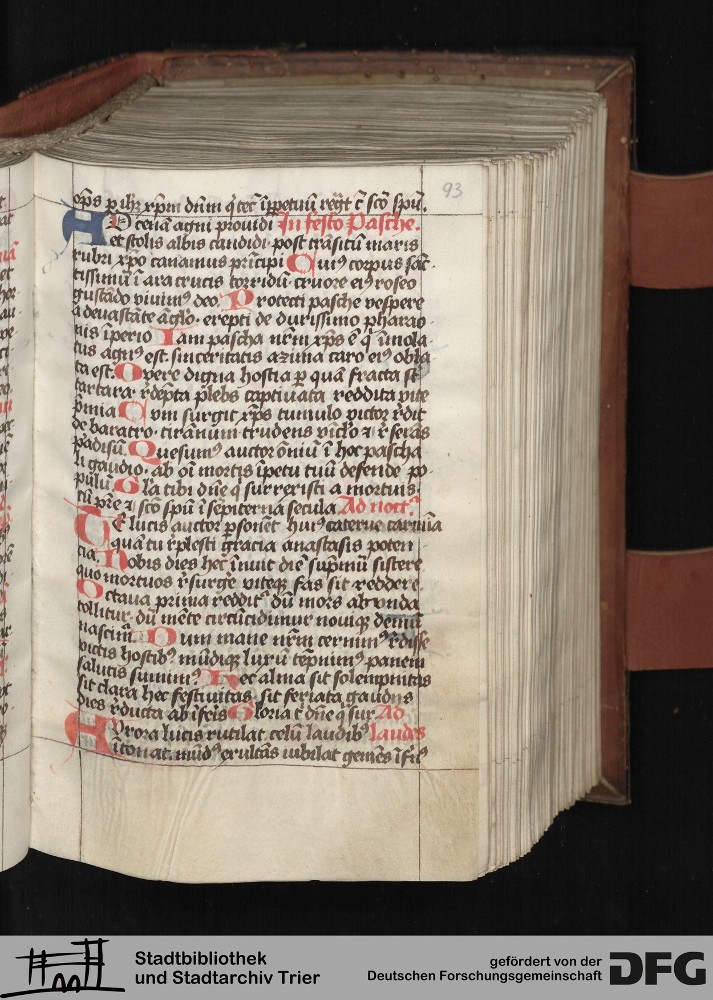 93
op̄s p ihm xpm dnm q tec ī ppetuū regt c̄ scō spū.
AD cenā agni prouidi In festo Pasche.
et stolis albis candidi · post trāsitū maris
rubri xpo canamus prīcipi Cuiꝰ corpus sāc
tissimū ī ara crucis torridū · cruore eiꝰ roseo
gustādo viuimꝰ deo. Protecti pasche vespere
a deuastāte āglo · erepti de durissimo pharao
nis īperio Iam pascha nr̄m xp̄s ē q̄ īmola
tus agnꝰ est sinceritatis azima caro eiꝰ obla
ta est. Overe digna hostia p quā fracta st̄
tartara · rēdēpta plebs captiuata reddita vite
p̄mia Cum surgit xp̄s tumulo victor rēdit
de baratro · tirānum trudens vīclo ⁊ rēserās
padisū. Quesumꝰ auctor ōniū ī hoc pascha
li gaudio · ab oī mortis īpetu tuū defende po
pulū. Gla tibi dn̄e q̄ surrexisti a mortuis ·
cū pr̄e ⁊ scō spū ī sēpiterna secula. Ad noct.
TE lucis auctor psonēt huiꝰ caterue carmīa
quā tu rēplesti gracia anastasis poten
cia. Nobis dies hec īnuit diē sup̄mū sistere
quo mortuos rēsurge viteqꝫ fas sit reddere.
Octaua prima redditꝰ dū mors abūnda
tollitur · dū mēte circūcidimur nouiqꝫ demū
nascimꝰ. Dum mane nr̄m cernimꝰ rēdisse
victis hostibꝰ mūdiqꝫ luxū tēpnimꝰ panem
salutis sumimꝰ Hec alma sit solempnitas
sit clara hec festiuitas · sit feriata gaudiis
dies rēducta ab īferis Gloria t̄ dn̄e q̄ sur Ad
AUrora lucis rutilat celū laudibꝰ laudes
ītonat. mūdꝰ exultās iubilat gemēs īfernꝰ
Stadtbibliothek
und Stadtarchiv Trier
gefördert von der
Deutschen Forschungsgemeinschaft
DFG